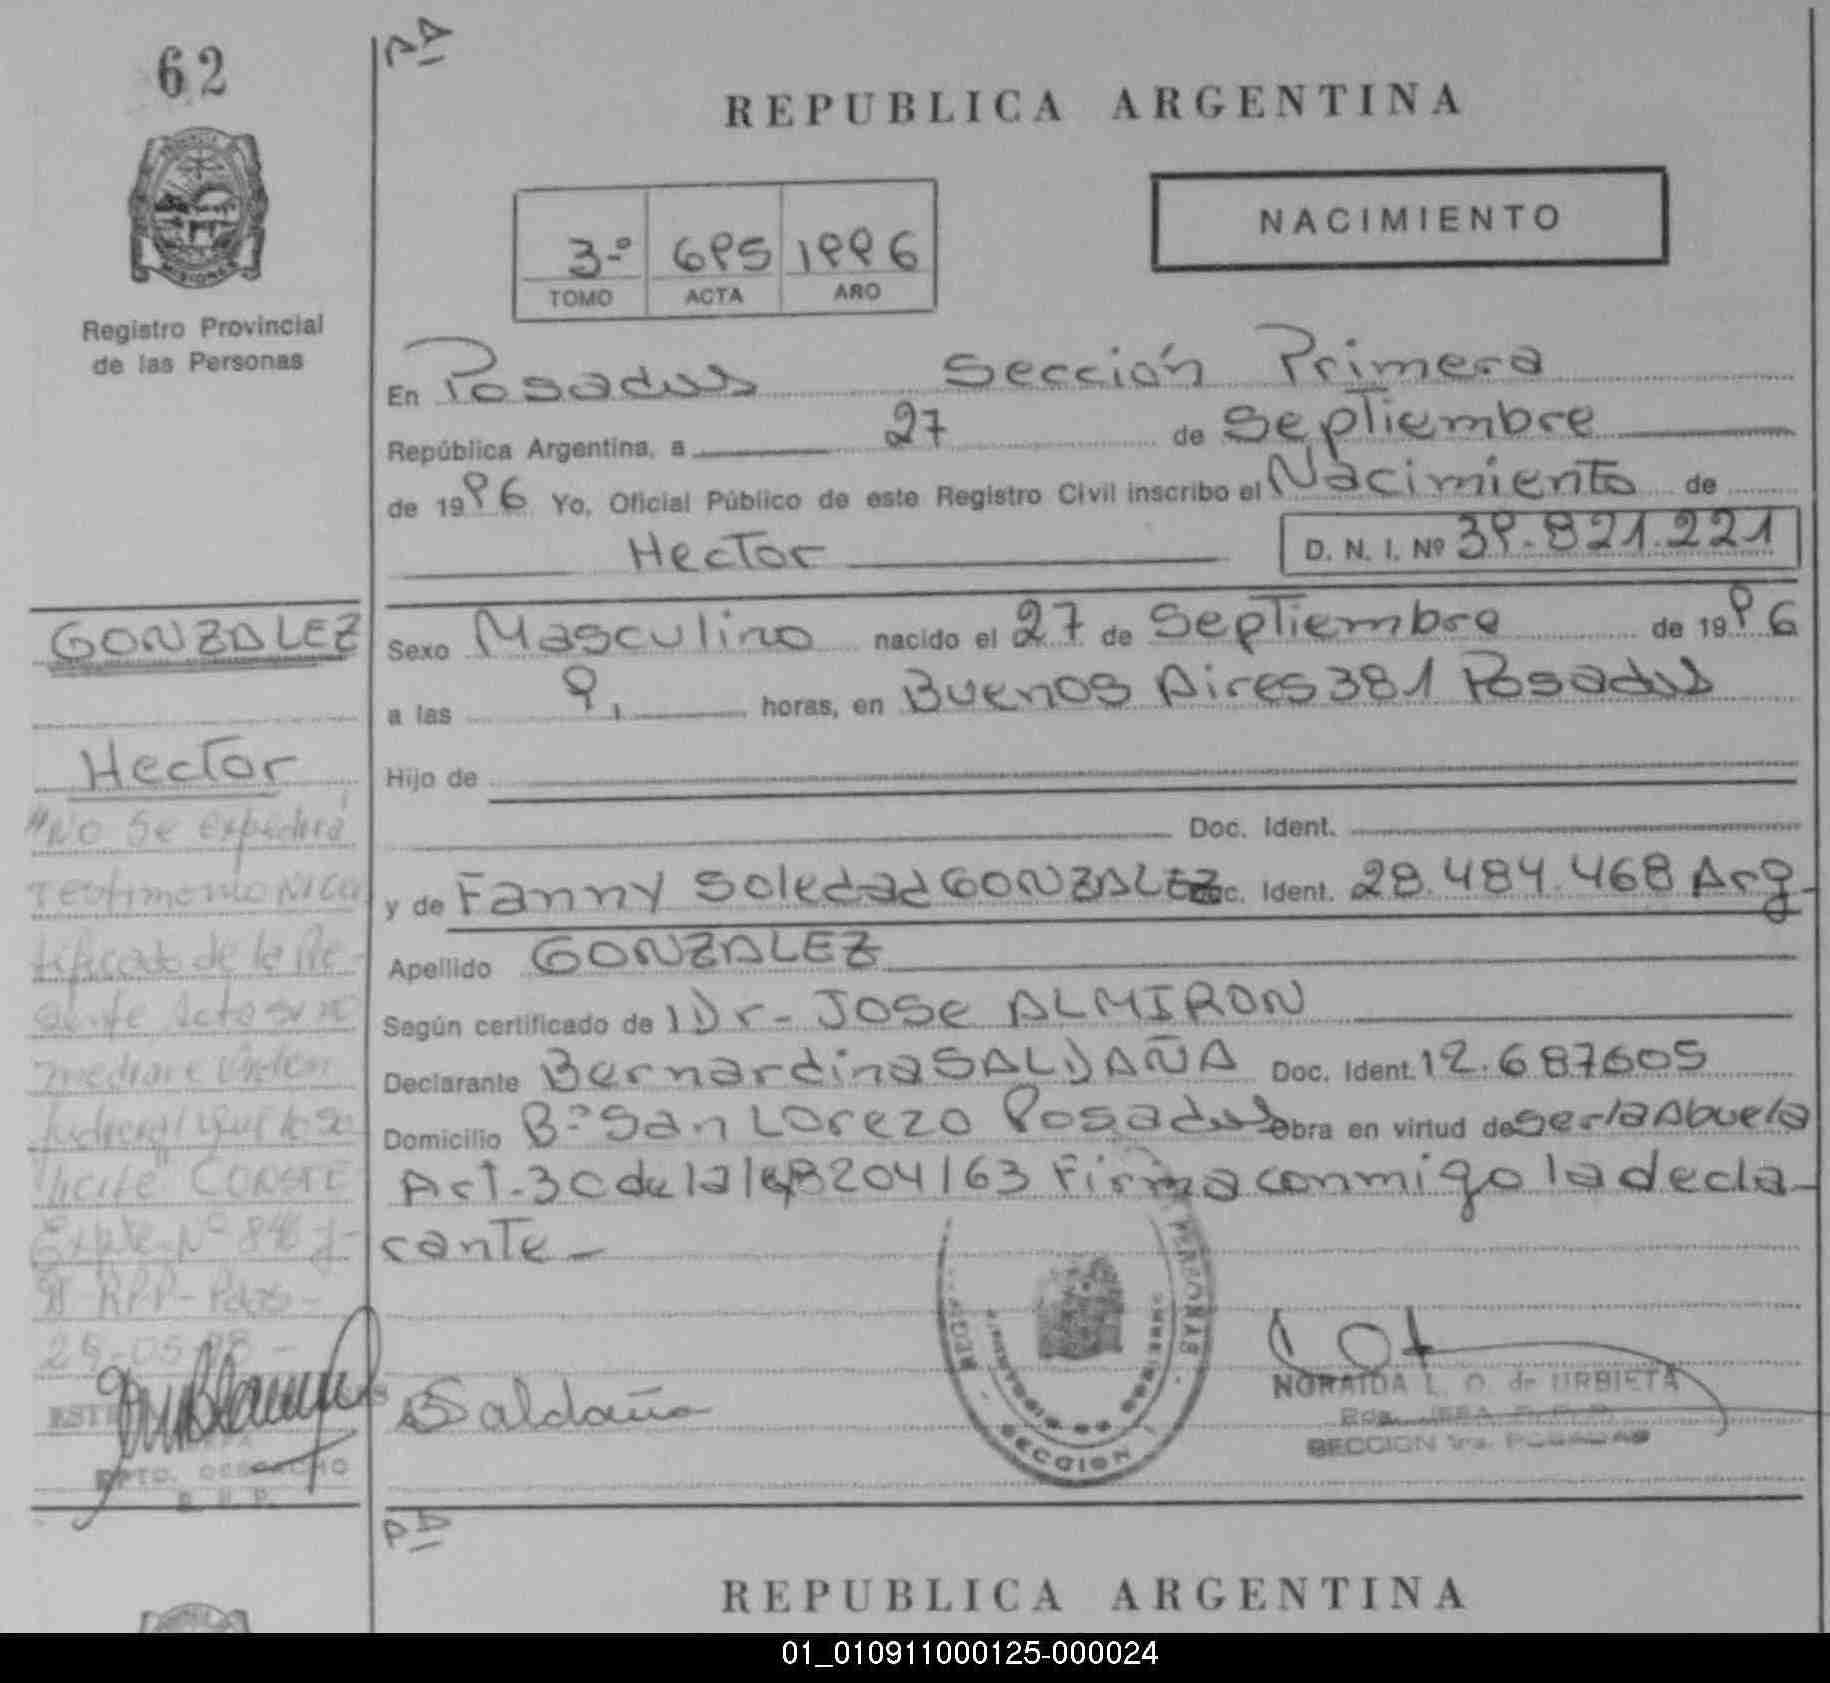 62
PA
REPUBLICA ARGENTINA
NACIMIENTO
3º 695 1996
TOMO ACTA AÑO
Registro Provincial
de las Personas
En Posadas Sección Primera
República Argentina, a 27 de Septiembre
de 1996 Yo, Oficial Público de este Registro Civil inscribo el Nacimiento de
Hector D. N. I. Nº 39.821.221
GONZALEZ
Hector
"No se expedirá
Testimonio Ni Cer
tificado de la Pre-
sente Acta si no
mediare Orden
Judicial que lo so
licite" CONSTE
Expte. Nº
RPP - Pdas -
Sexo Masculino nacido el 27 de Septiembre de 1996
a las 9, horas, en Buenos Aires 381 Posadas
Hijo de
Doc. Ident.
y de Fanny Soledad GONZALEZ Doc. Ident. 28.484.468 Arg-
Apellido GONZALEZ
Según certificado de Dr- Jose ALMIRON
Declarante Bernardina SALDAÑA Doc. Ident. 12.687605
Domicilio Bº San Lorezo Posadas Obra en virtud de ser la Abuela
Art. 30 de la ley 8204/63 Firma conmigo la decla-
rante -
B Saldaña
PERSONAS
SECCION 1
NORAIDA L. O. de URBIETA
SECCION 1ra. POSADAS
DPTO. DESPACHO
R. P. P.
PA
REPUBLICA ARGENTINA
01_010911000125-000024